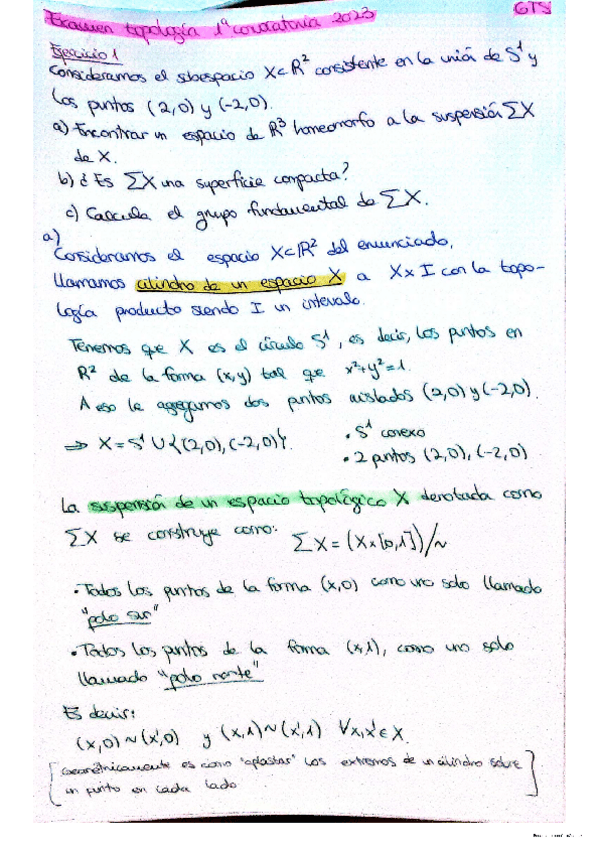 Examen topología 1ª convocatoria 2023
GTS
Ejercicio 1
Consideramos el subespacio X⊂R² consistente en la unión de S¹ y
los puntos (2,0) y (-2,0).
a) Encontrar un espacio de R³ homeomorfo a la suspensión ΣX
de X.
b) ¿Es ΣX una superficie compacta?
c) Calcula el grupo fundamental de ΣX.
a)
Consideramos el espacio X⊂R² del enunciado,
llamamos cilindro de un espacio X a X×I con la topo-
logía producto siendo I un intervalo.
Tenemos que X es el círculo S¹, es decir, los puntos en
R² de la forma (x,y) tal que x²+y²=1.
A eso le agregamos dos puntos aislados (2,0) y (-2,0).
⇒ X = S¹ ∪ {(2,0), (-2,0)}.
• S¹ conexo
• 2 puntos (2,0), (-2,0)
La suspensión de un espacio topológico X denotada como
ΣX se construye como: ΣX = (X×[0,1])/~
• Todos los puntos de la forma (x,0) como uno solo llamado
"polo sur"
• Todos los puntos de la forma (x,1), como uno solo
llamado "polo norte"
Es decir:
(x,0) ~ (x',0) y (x,1) ~ (x',1) ∀x,x' ∈ X.
[Geométricamente es como "aplastar" los extremos de un cilindro sobre
un punto en cada lado]